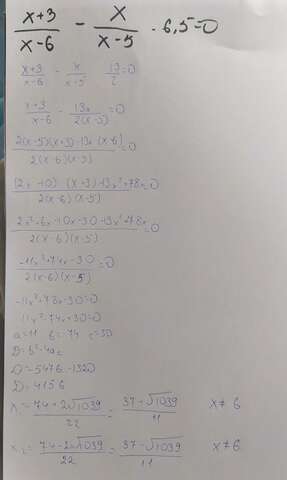 x+3/x-6 - x/x-5 · 6,5=0
x+3/x-6 - x/x-5 13/2=0
x+3/x-6 - 13x/2(x-5)=0
2(x-5)(x+3)-13x(x-6)/2(x-6)(x-5)=0
(2x-10)·(x+3)-13x²+78x=0/2(x-6)(x-5)
2x²+6x-10x-30-13x²+78x/2(x-6)(x-5)=0
-11x²+74x-30/2(x-6)(x-5)=0
-11x²+78x-30=0
11x²-74x+30=0
a=11 b=-74 c=30
D=b²-4ac
D=5476-1320
D=4156
x₁=74+2√1039/22=37+√1039/11 x≠6
x₂=74-2√1039/22=37-√1039/11 x≠6